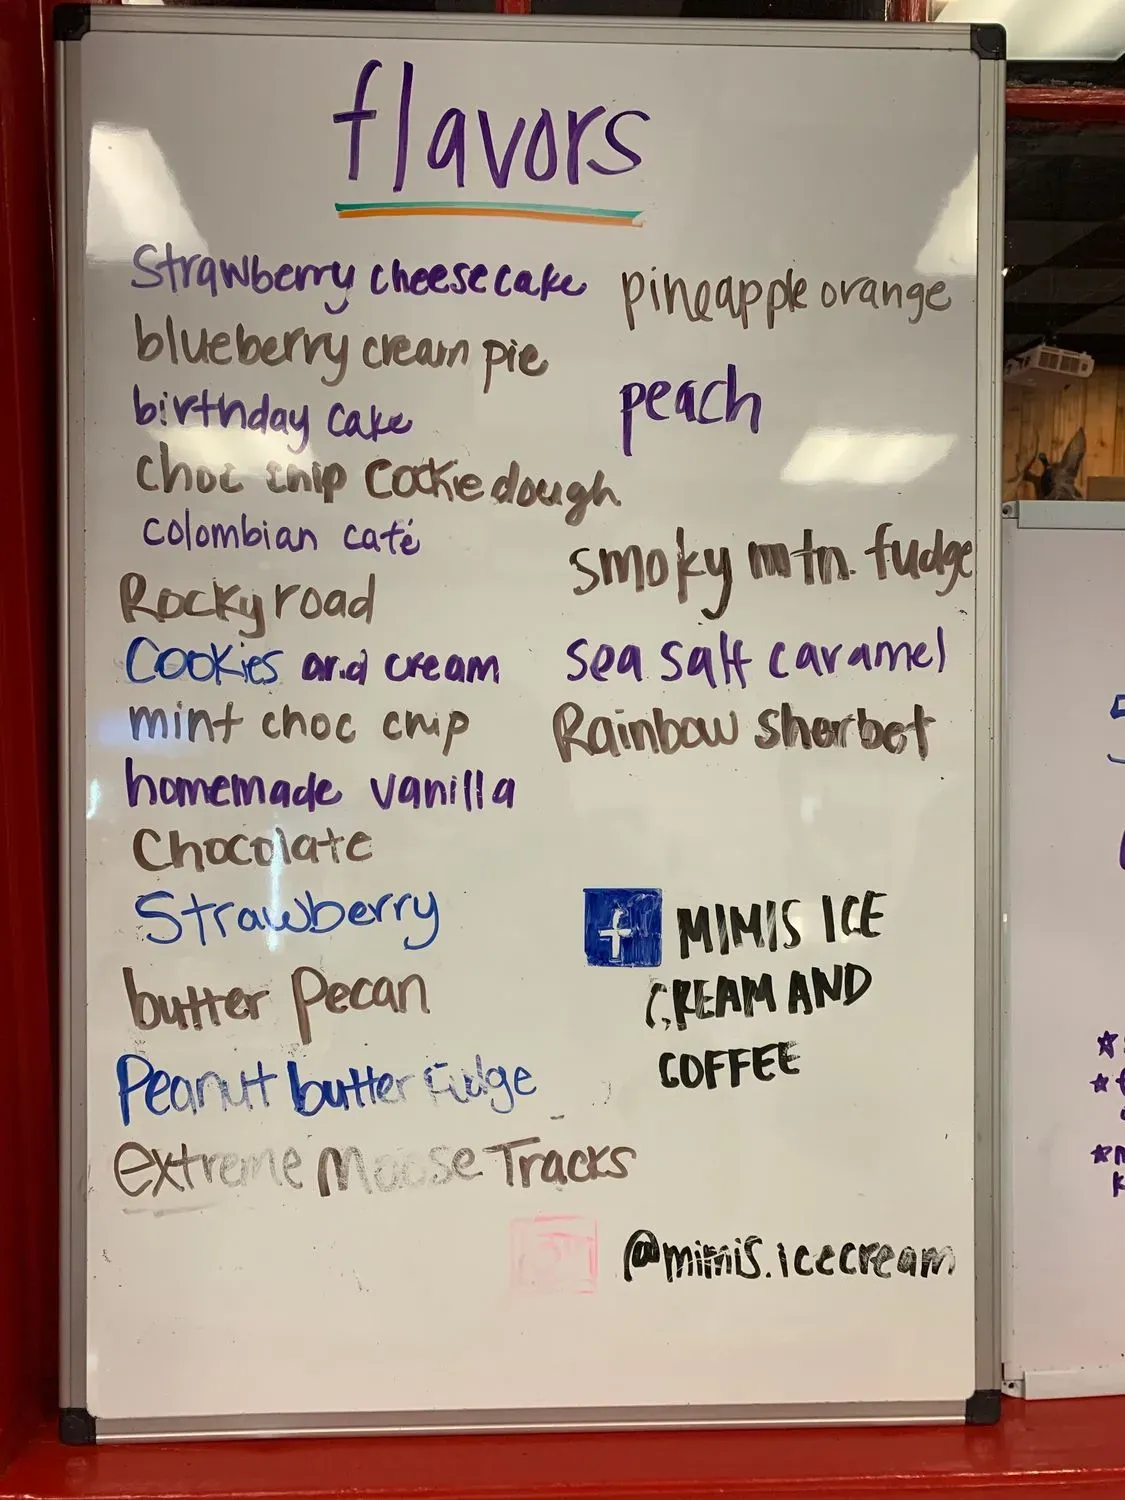 flavors
Strawberry cheesecake
blueberry cream pie
birthday cake
choc chip cookie dough
colombian café
Rocky road
Cookies and cream
mint choc chip
homemade vanilla
Chocolate
Strawberry
butter pecan
Peanut butter fudge
extreme Moose Tracks
pineapple orange
peach
smoky mtn. fudge
sea salt caramel
Rainbow sherbet
f MIMIS ICE
CREAM AND
COFFEE
@mimis.icecream